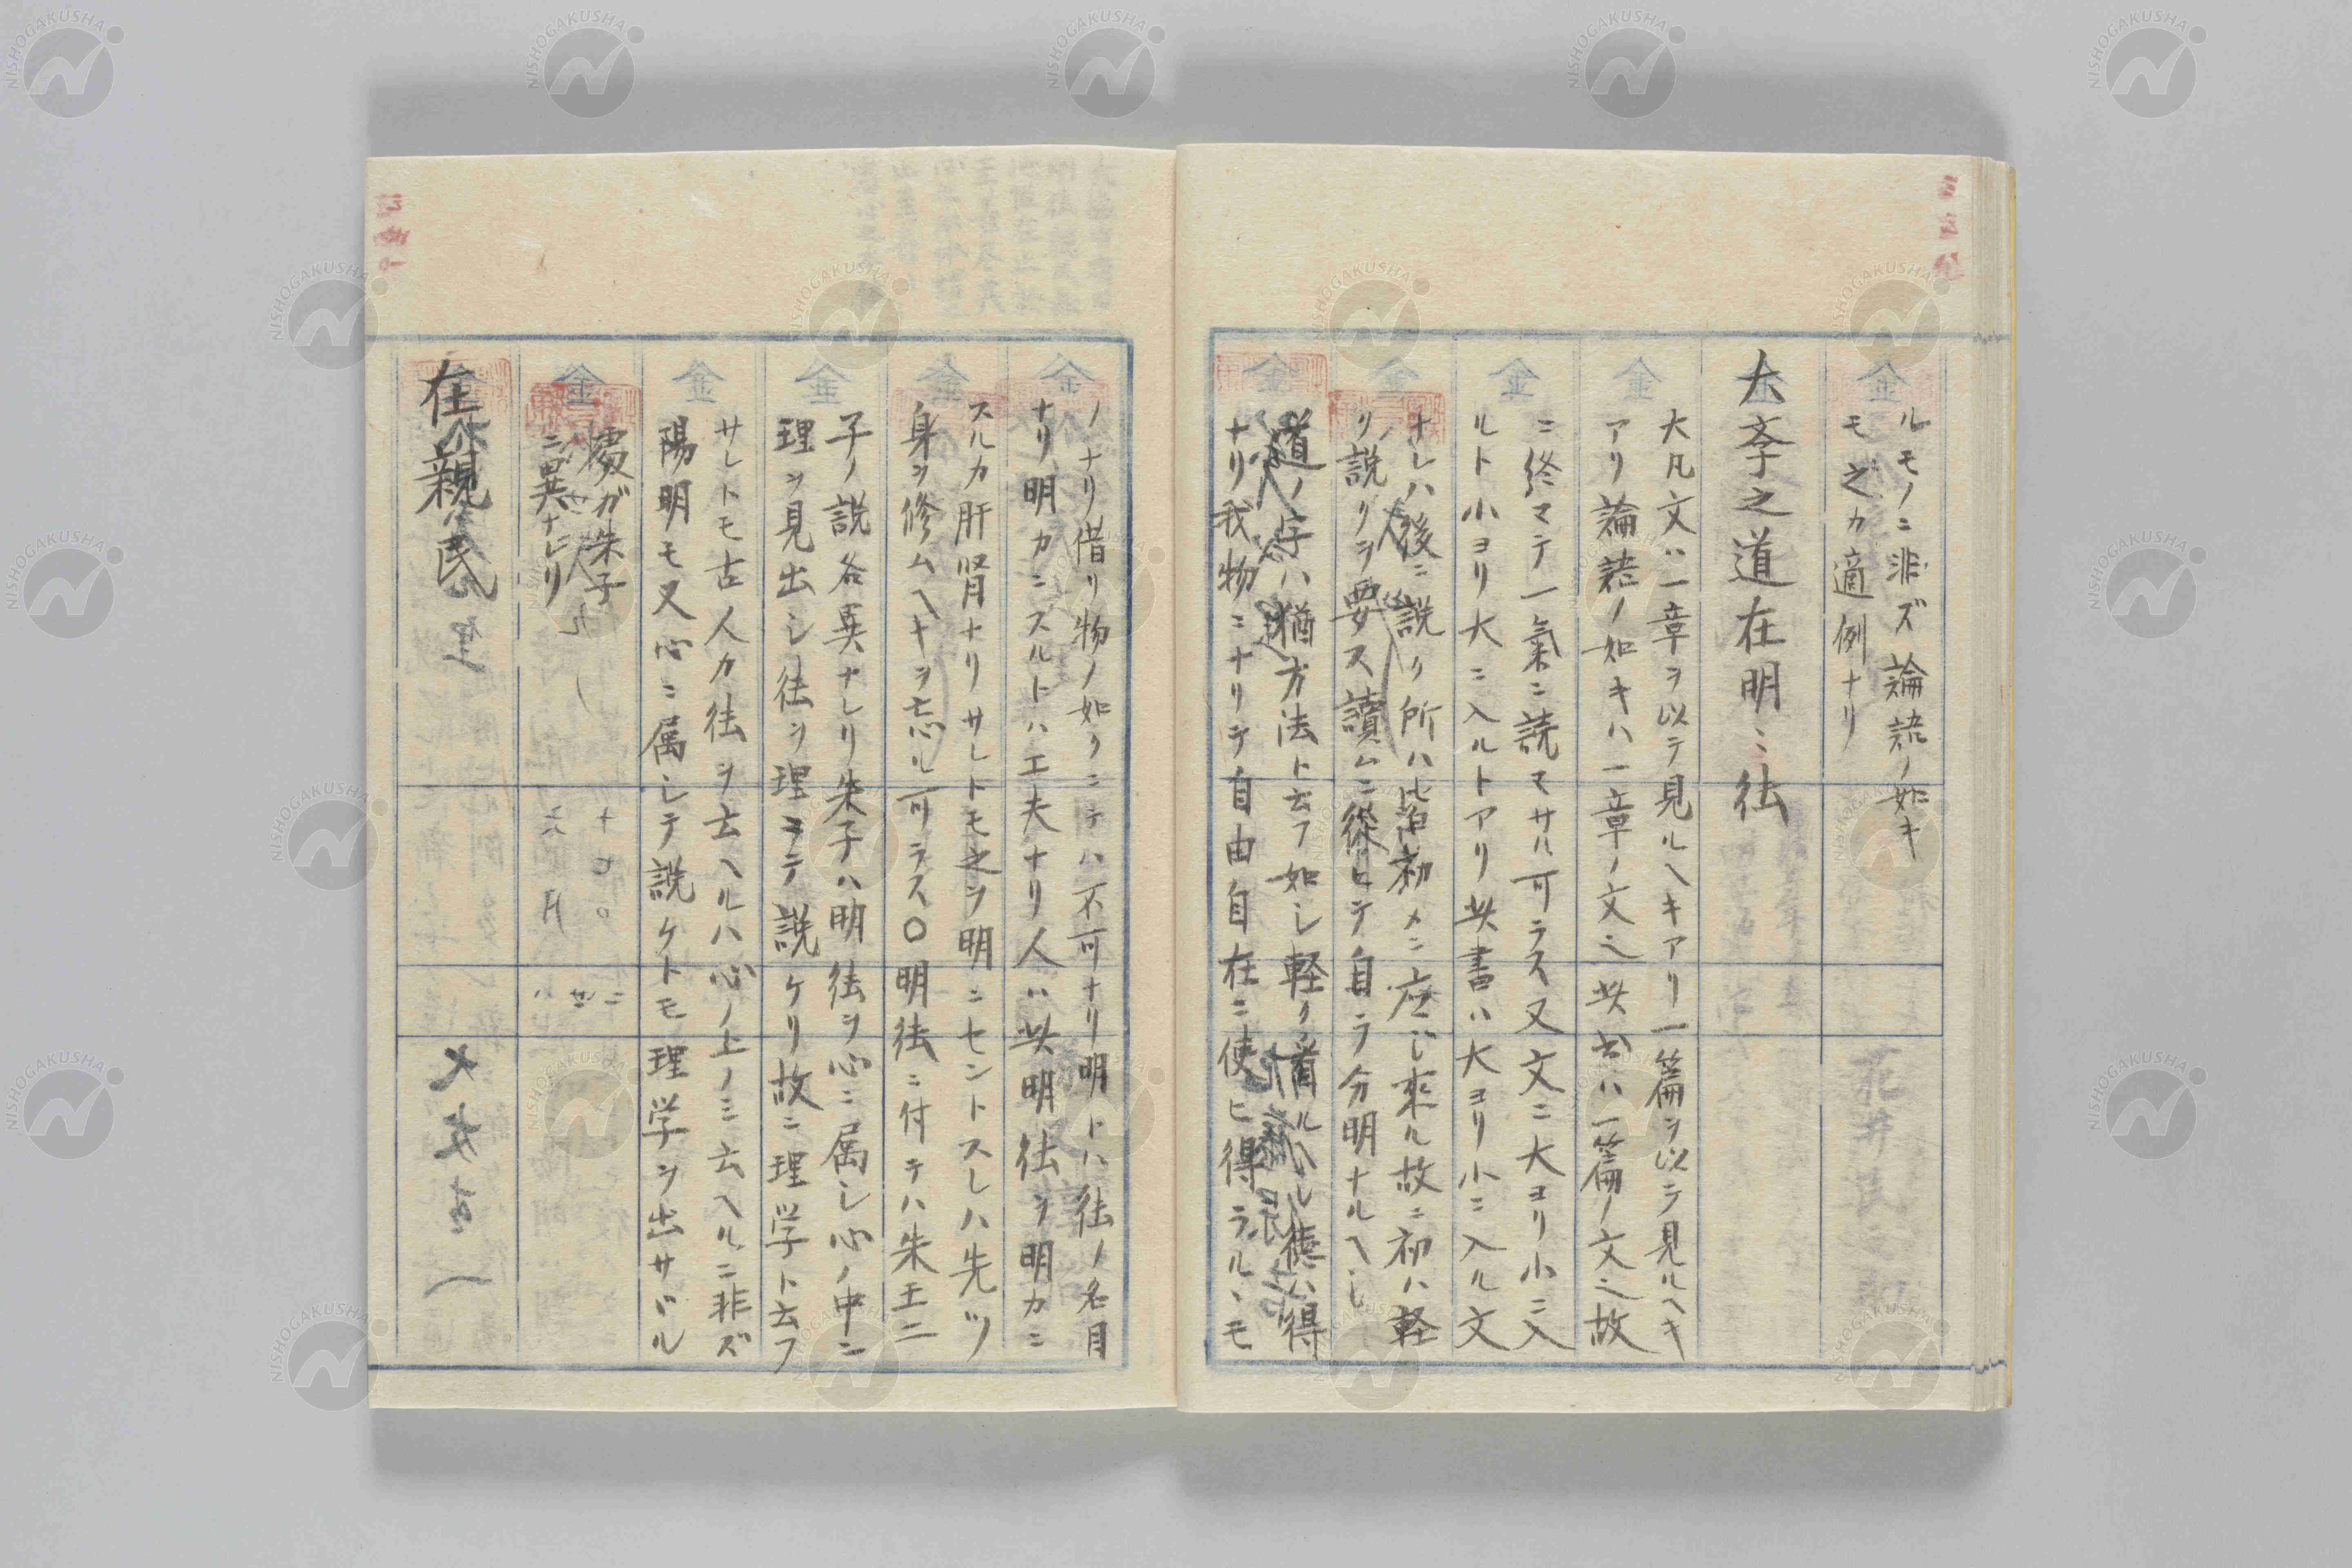 ルモノニ非ズ論語ノ如キ
モ之カ適例ナリ
大斈之道在明〻徳
大凡文ハ一章ヲ以テ見ルヘキアリ一篇ヲ以テ見ルヘキ
アリ論語ノ如キハ一章ノ文ニ〆此書ハ一篇ノ文ニ〆故
ニ終マテ一氣ニ読マサル可ラス又文ニ大ヨリ小ニ入
ルト小ヨリ大ニ入ルトアリ此書ハ大ヨリ小ニ入ル文
ナレハ後ニ説ク所ハ皆初メニ応シ来ル故ニ初ハ軽
ク説クヲ要ス讀ムニ從ヒテ自ラ分明ナルヘシ
道ノ字ハ猶方法ト云フ如シ軽ク看ルヘシ徳ハ得
ナリ我物ニナリテ自由自在ニ使ヒ得ラルヽモ
ノナリ借リ物ノ如クニテハ不可ナリ明トハ徳ノ名目
ナリ明カニスルトハ工夫ナリ人ハ此明徳ヲ明カニ
スルカ肝腎ナリサレトモ之ヲ明ニセントスレハ先ツ
身ヲ修ムヘキヲ忘ル可ラス〇明徳ニ付テハ朱王二
子ノ説各異ナレリ朱子ハ明徳ヲ心ニ属シ心ノ中ニ
理ヲ見出シ徳ヲ理ヲテ説ケリ故ニ理学ト云フ
サレトモ古人カ徳ヲ云ヘルハ心ノ上ノミ云ヘルニ非ズ
陽明モ又心ニ属シテ説ケトモ理学ヲ出サドル
處ガ朱子
ニ異ナレリ
在親民
NISHOGAKUSHA